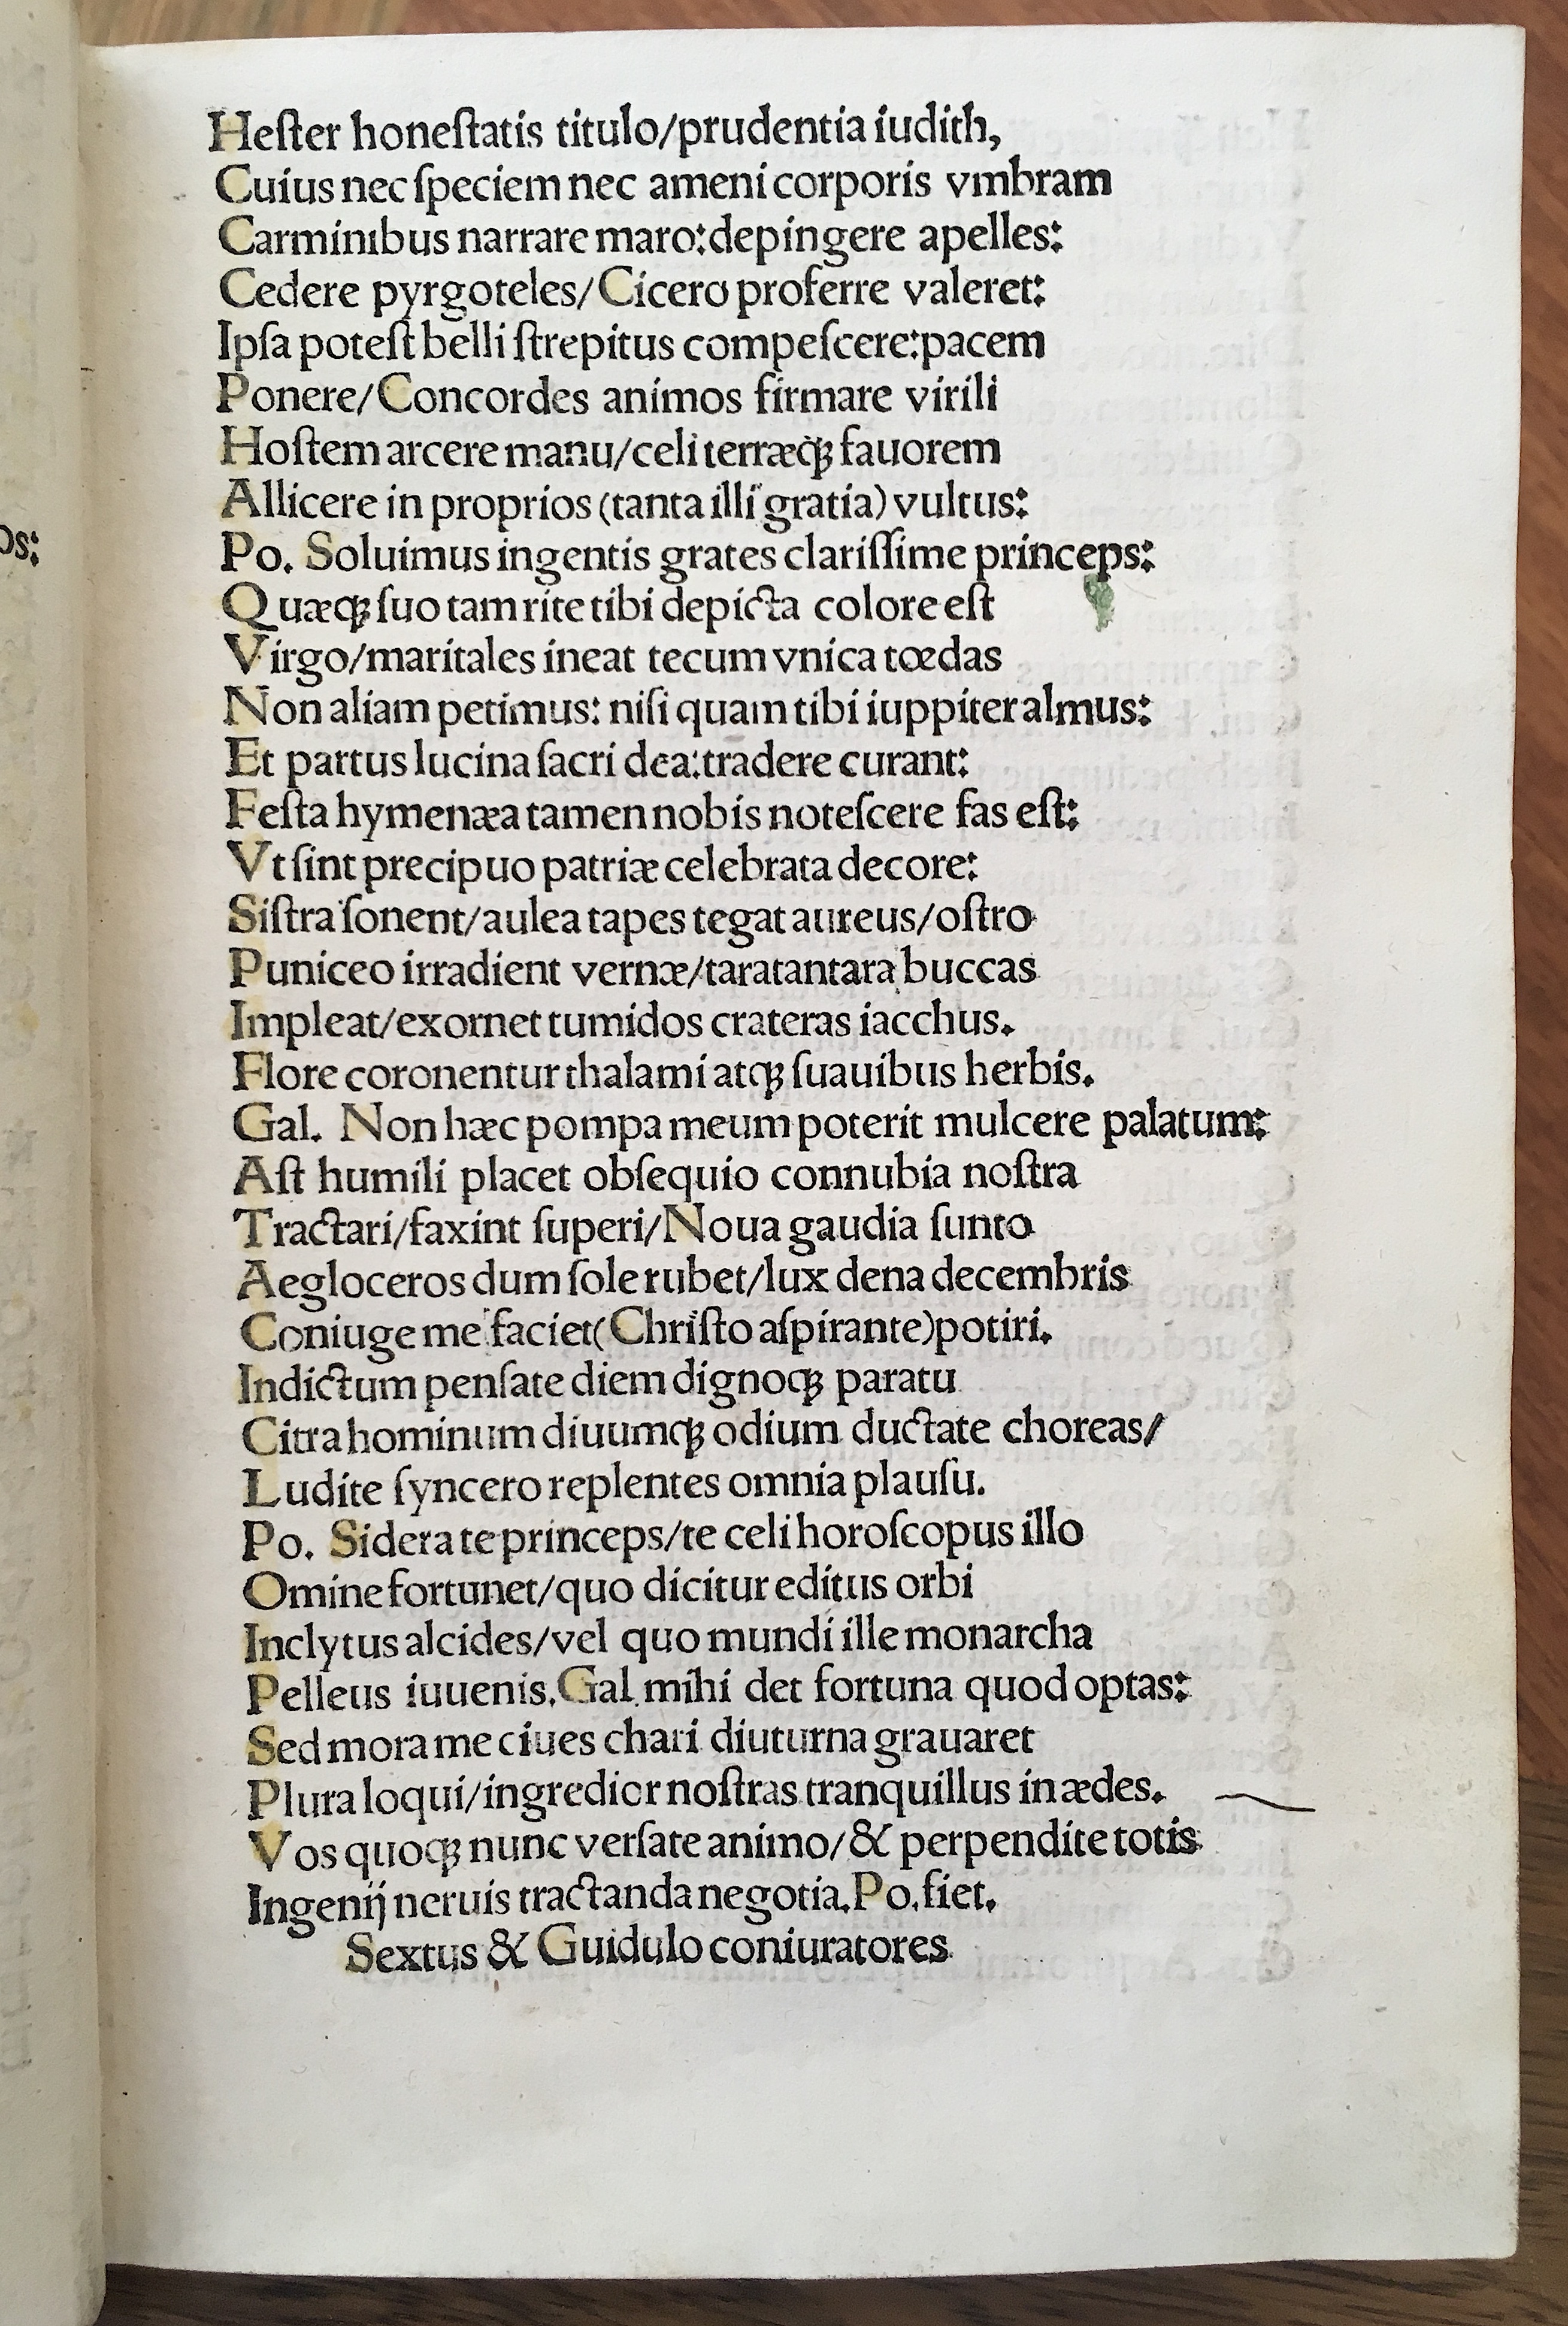 Heſter honeſtatis titulo/prudentia iudith,
Cuius nec ſpeciem nec ameni corporis vmbram
Carminibus narrare maro:depingere apelles:
Cedere pyrgoteles/Cicero proferre valeret:
Ipſa poteſt belli ſtrepitus compeſcere:pacem
Ponere/Concordes animos firmare virili
Hoſtem arcere manu/celi terræqꝫ fauorem
Allicere in proprios (tanta illi gratia) vultus:
os:
Po. Soluimus ingentis grates clariſſime princeps:
Quæqꝫ ſuo tam rite tibi depicta colore eſt
Virgo/maritales ineat tecum vnica tœdas
Non aliam petimus: niſi quam tibi iuppiter almus:
Et partus lucina ſacri dea:tradere curant:
Feſta hymenæa tamen nobis noteſcere fas eſt:
Vt ſint precipuo patriæ celebrata decore:
Siſtra ſonent/aulea tapes tegat aureus/oſtro
Puniceo irradient vernæ/taratantara buccas
Impleat/exornet tumidos crateras iacchus.
Flore coronentur thalami atqꝫ ſuauibus herbis.
Gal. Non hæc pompa meum poterit mulcere palatum:
Aſt humili placet obſequio connubia noſtra
Tractari/faxint ſuperi/Noua gaudia ſunto
Aegloceros dum ſole rubet/lux dena decembris
Coniuge me faciet(Chriſto aſpirante)potiri.
Indictum penſate diem dignoqꝫ paratu
Citra hominum diuumqꝫ odium ductate choreas/
Ludite ſyncero replentes omnia plauſu.
Po. Sidera te princeps/te celi horoſcopus illo
Omine fortunet/quo dicitur editus orbi
Inclytus alcides/vel quo mundi ille monarcha
Pelleus iuuenis.Gal.mihi det fortuna quod optas:
Sed mora me ciues chari diuturna grauaret
Plura loqui/ingredior noſtras tranquillus in ædes.
Vos quoqꝫ nunc verſate animo/& perpendite totis
Ingenij neruis tractanda negotia.Po.fiet.
Sextus & Guidulo coniuratores